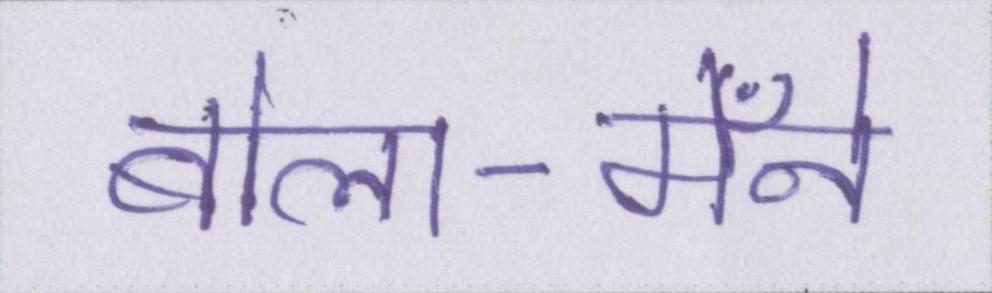 बोला-मेँने